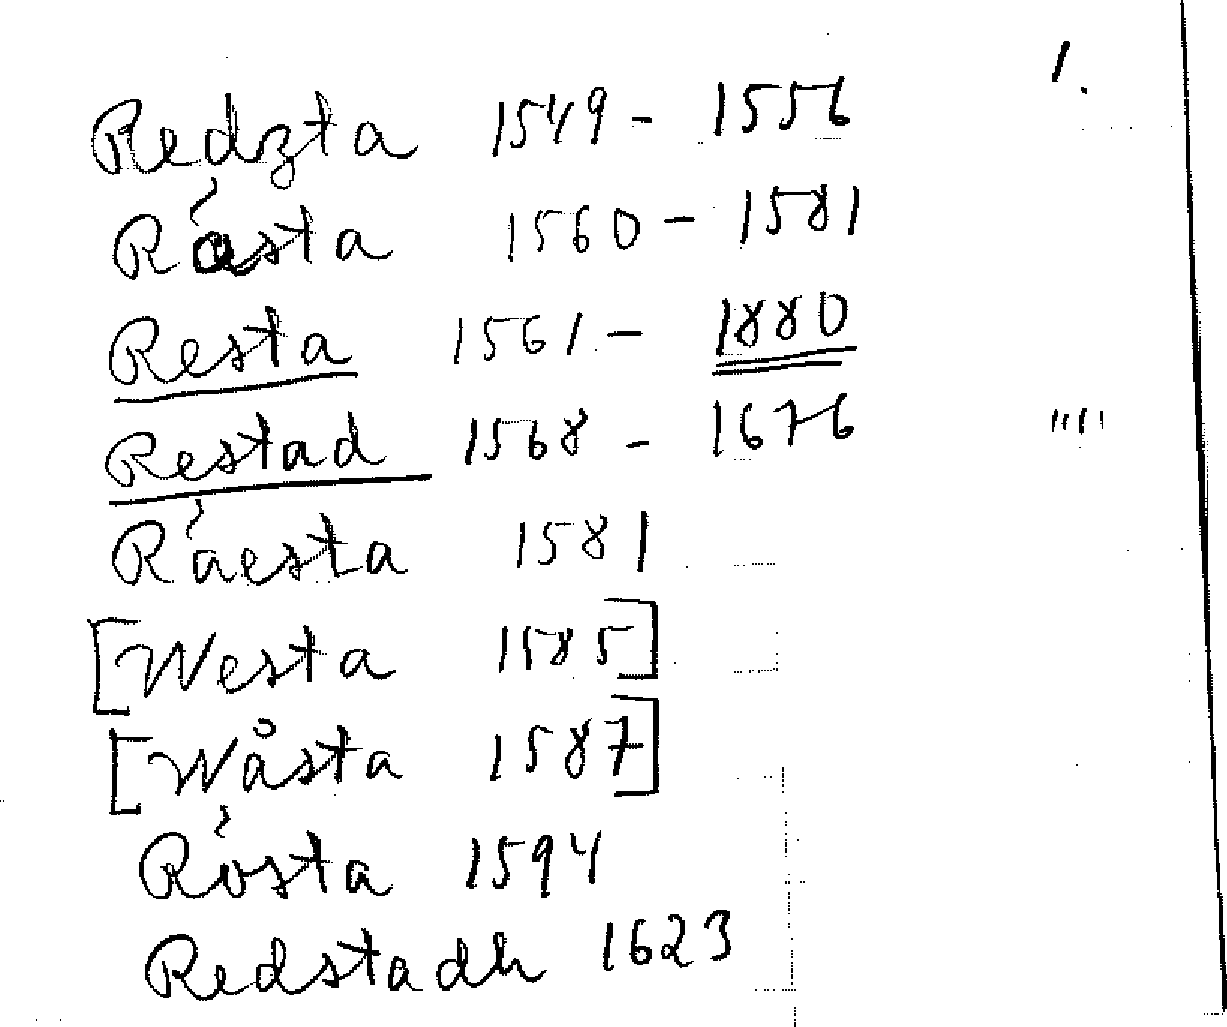 1.
Redzta 1549 - 1556
Råsta 1560 - 1581
Resta 1561 - 1880
Restad 1568 - 1676 ""
Råesta 1581
[Westa 1585]
[Wåsta 1587]
Rósta 1594
Redstadh 1623